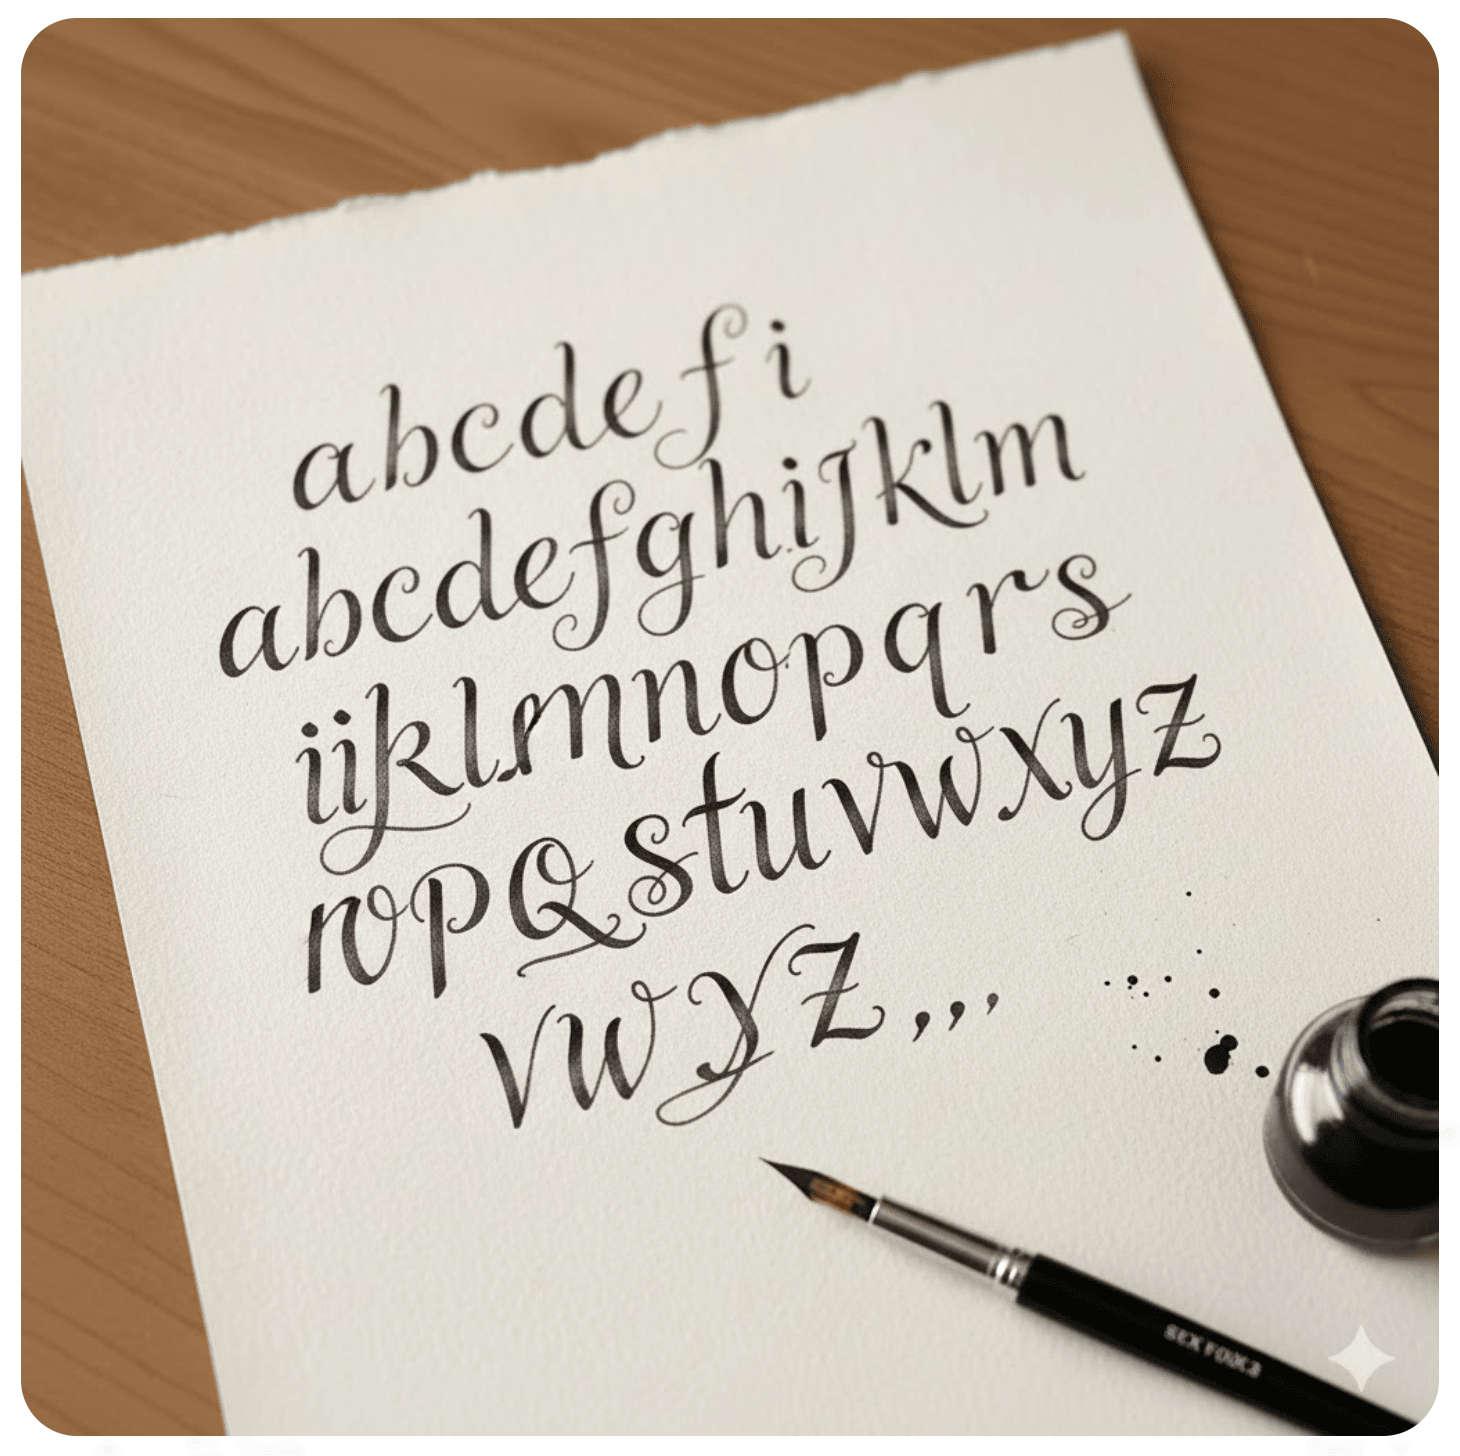 abcdef i
abcdefghijklm
iijklmnopqrs
nopQstuvwxyz
vwyz,,,